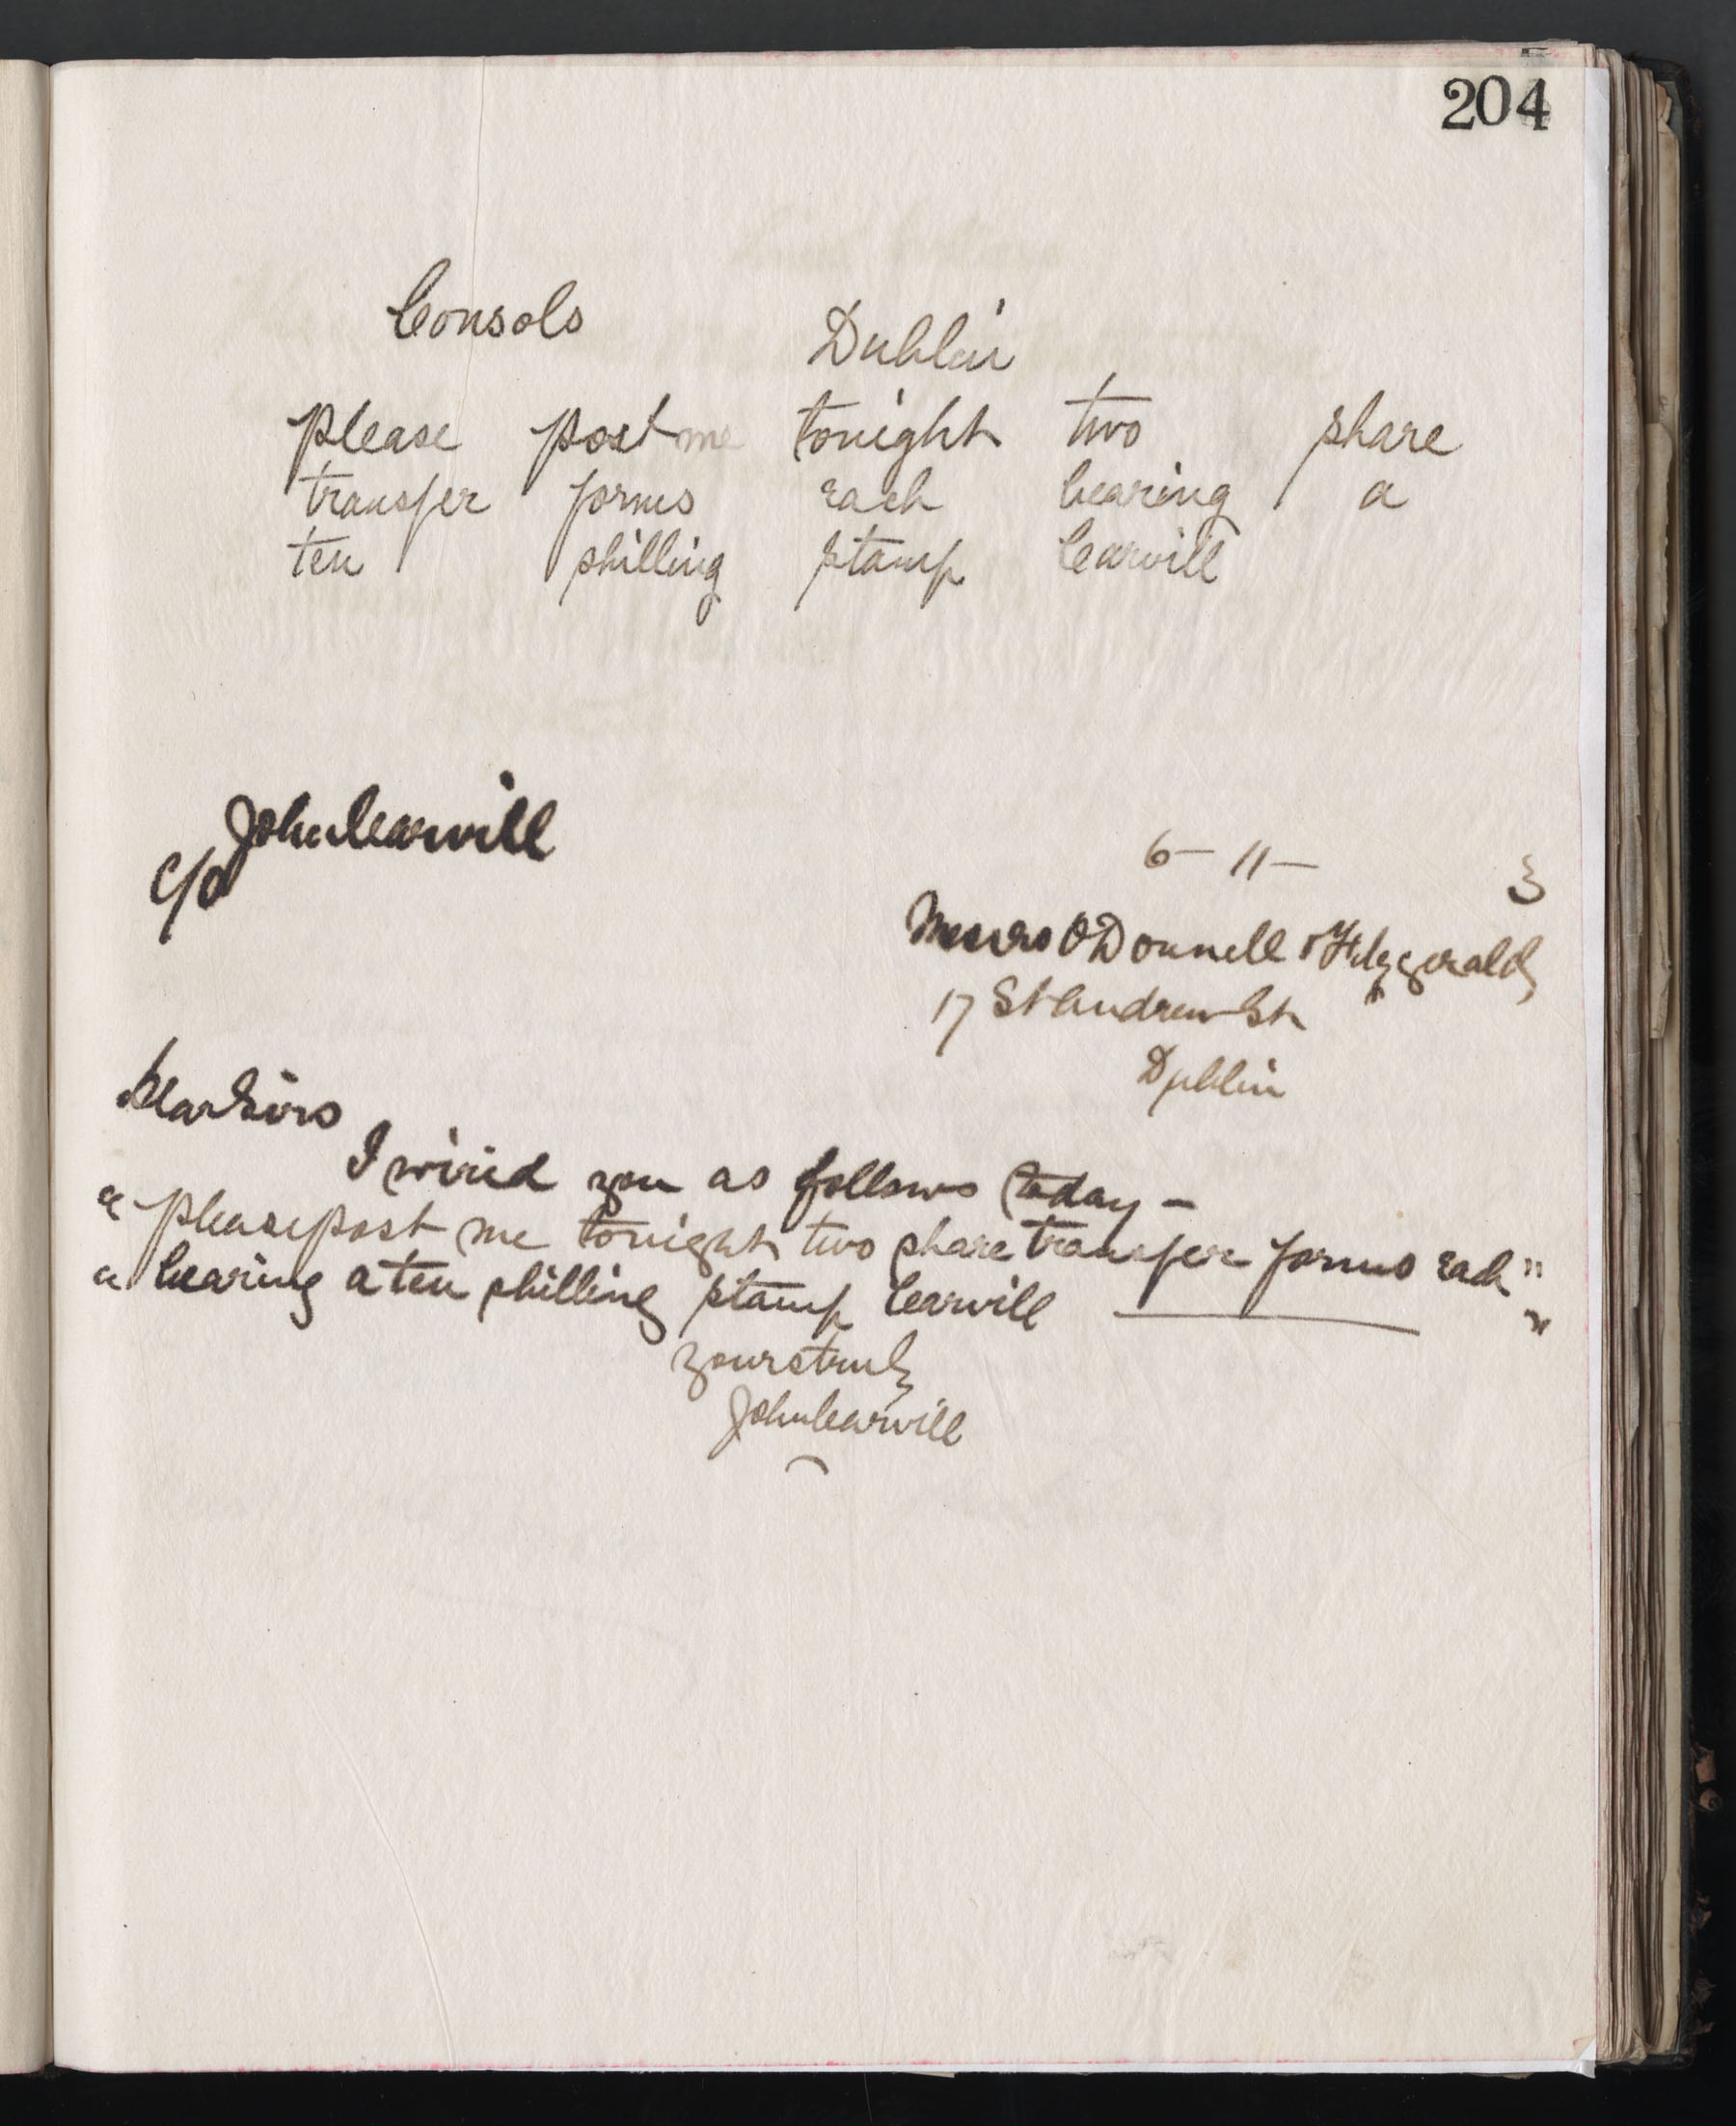 204
Consols
Dublin
please post me tonight two share
transfer forms each bearing a
ten shilling stamp Carvill
John Carvill
C/o
6 - 11 - 3
Messrs O'Donnell & Fitzgerald
17 St Andrew St
Dublin
Dear Sirs
I wired you as follows today -
"please post me tonight two share transfer forms each"
"bearing a ten shilling stamp Carvill "
yours truly
John Carvill